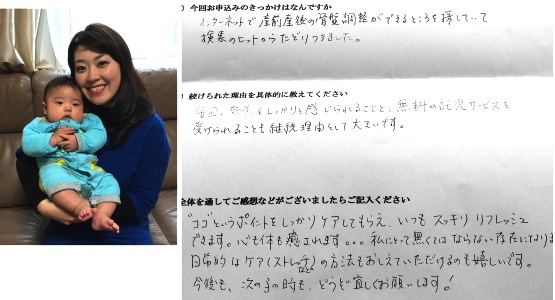 ) 今回お申込みのきっかけはなんですか
インターネットで産前産後の骨盤調整ができるところを探していて
検索のヒットからたどりつきました。
) 続けられた理由を具体的に教えてください
毎回、効果をしっかりと感じられることと、無料の託児サービスを
受けられることも継続理由として大きいです。
全体を通してご感想などがございましたらご記入ください
"ココ"というポイントをしっかりケアしてもらえ、いつもスッキリリフレッシュ
できます。心も体も癒されます。。。私にとって無くてはならない存在になりま
日常的なケア(ストレッチなど)の方法もおしえていただけるのも嬉しいです。
今後も、次の子の時も、どうぞ宜しくお願いします!